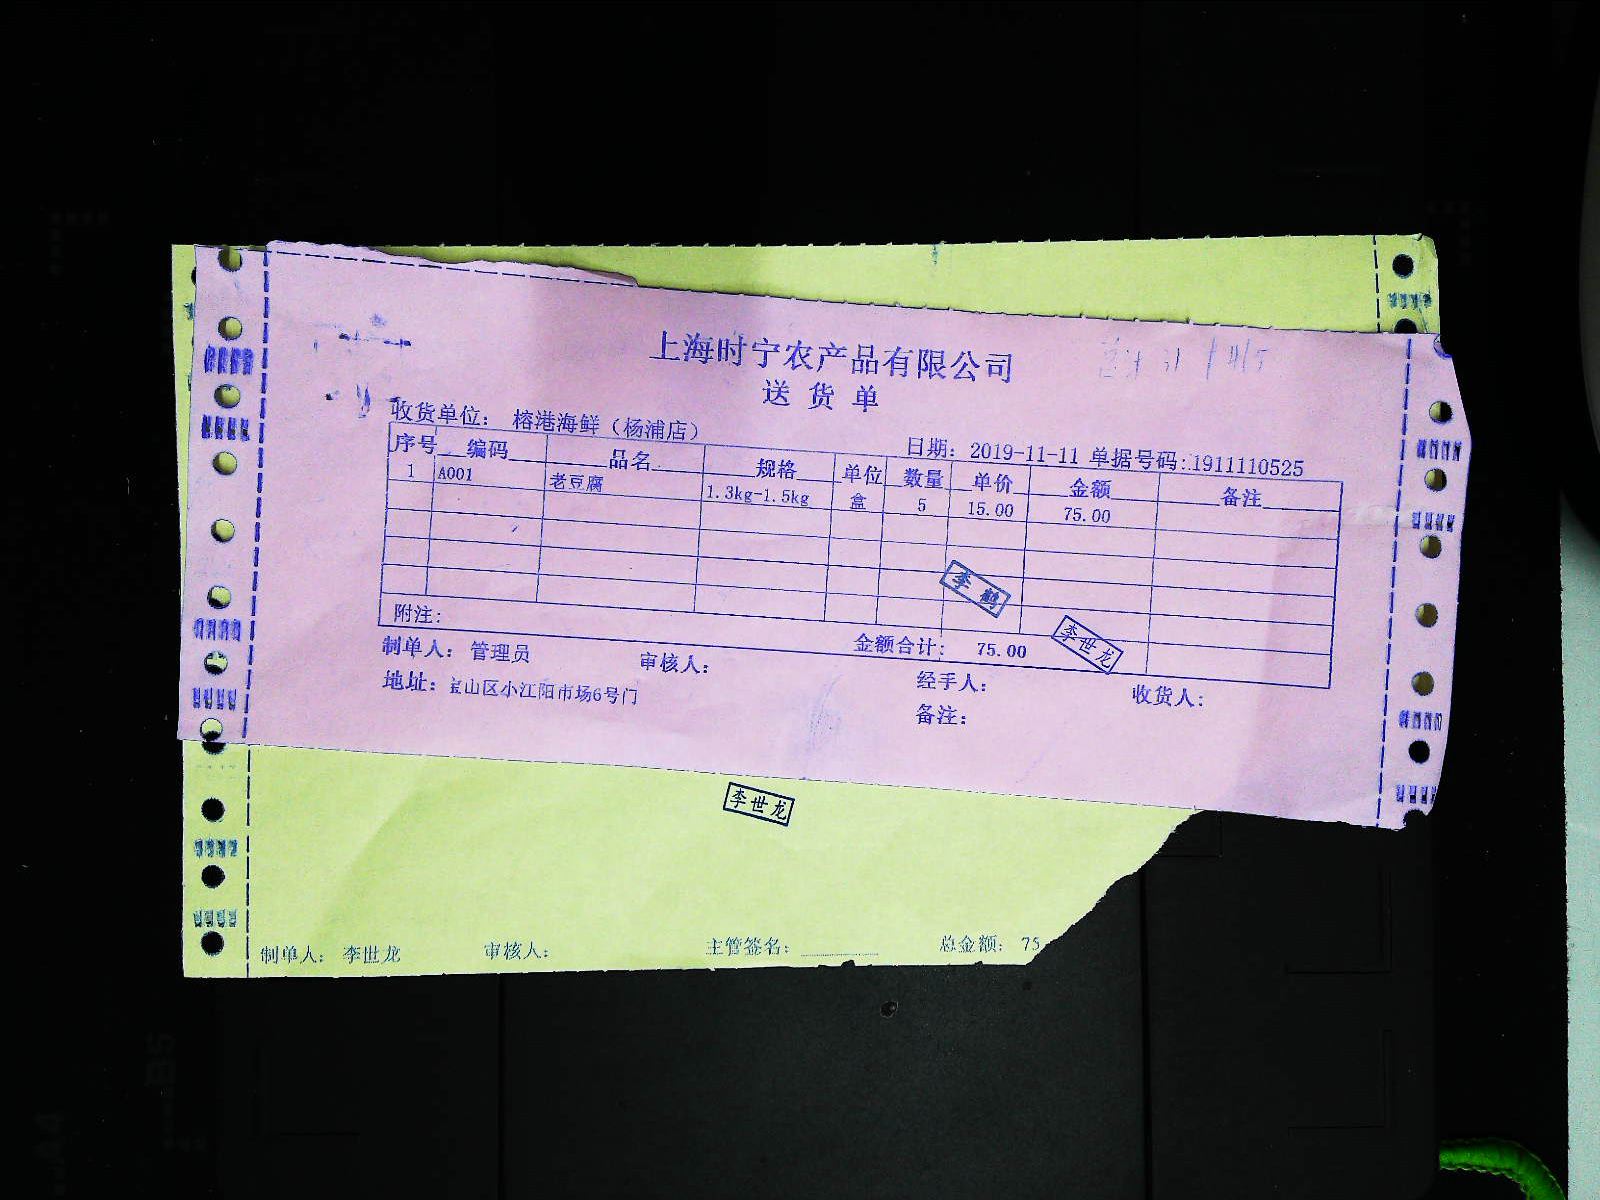 上海时宁农产品有限公司
送货单
收货单位： 榕港海鲜（杨浦店）
日期：2019-11-11 单据号码：1911110525
序号 编码 品名 规格 单位 数量 单价 金额 备注
1 A001 老豆腐 1.3kg-1.5kg 盒 5 15.00 75.00
李鹤
李世龙
附注：
金额合计： 75.00
制单人：管理员 审核人： 经手人： 收货人：
地址：宝山区小江阳市场6号门 备注：
李世龙
制单人：李世龙 审核人： 主管签名： 总金额：75
B5
A4